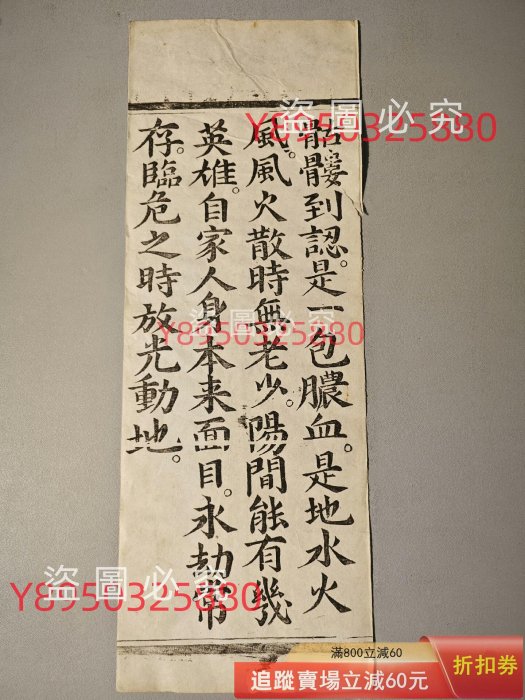 骷髏到認。是一包膿血。是地水火
風。風火散時無老少。陽間能有幾
英雄。自家人身本来面目。永劫常
存。臨危之時放光動地。
盜圖必究
Y8950325880
盜圖必究
Y8950325880
盜圖必究
Y8950325880
滿800立減60
追蹤賣場立減60元
折扣券